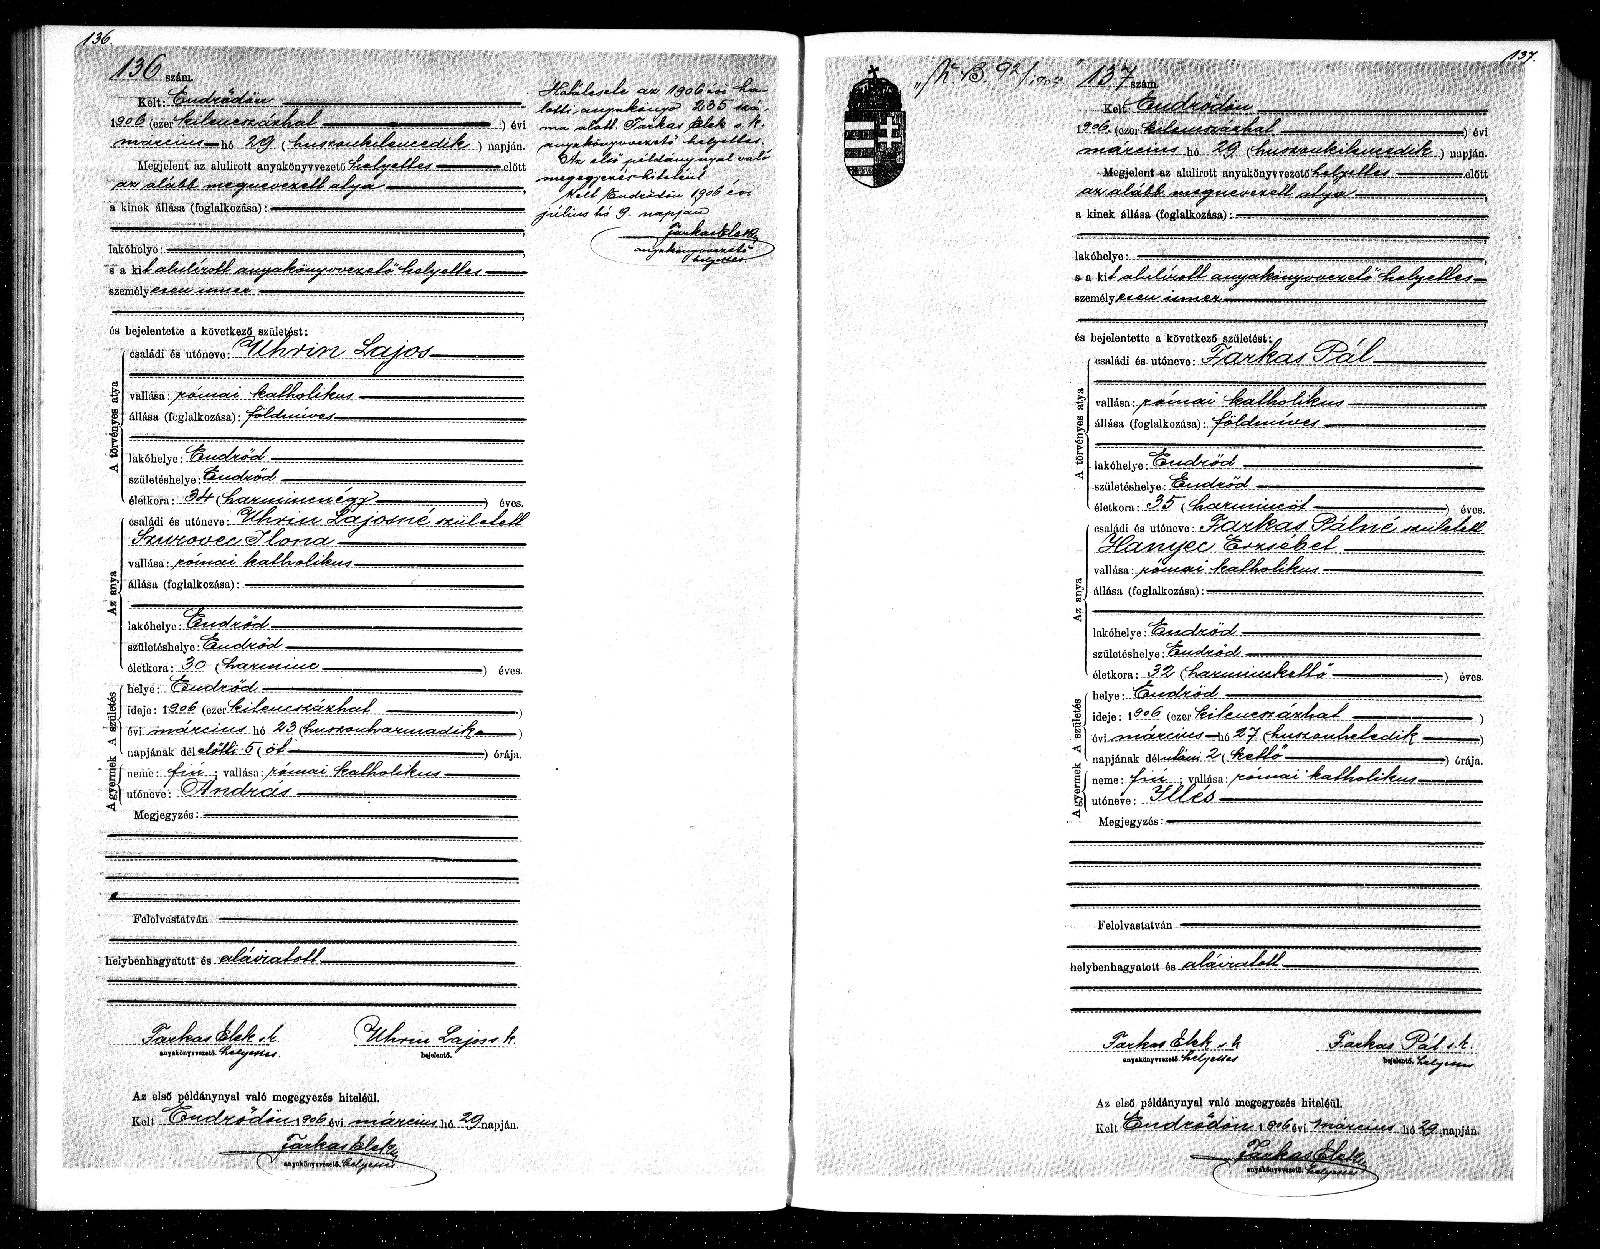 136
136 szám.
Kelt: Endrődön
1906 (ezer kilenczázhat ) évi
március hó 29 (huszonkilencedik ) napján.
Megjelent az alulirott anyakönyvvezető helyettes előtt
az alább megnevezett atya
a kinek állása (foglalkozása):
lakóhelye:
s a kit alulírott anyakönyvvezető helyettes
személyesen ismer
és bejelentette a következő születést:
A törvényes atya
családi és utóneve: Uhrin Lajos
vallása: római katholikus
állása (foglalkozása): földmíves
lakóhelye: Endrőd
születéshelye: Endrőd
életkora: 34 (harmincnégy ) éves.
Az anya
családi és utóneve: Uhrin Lajosné született
Szurovec Ilona
vallása: római katholikus
állása (foglalkozása):
lakóhelye: Endrőd
születéshelye: Endrőd
életkora: 30 (harminc ) éves.
A gyermek A születés
helye: Endrőd
ideje: 1906 (ezer kilenczázhat )
évi március hó 23 (huszonharmadik )
napjának dél előtti 5 (öt ) órája.
neme: fiú ; vallása: római katholikus
utóneve: András
Megjegyzés:
Felolvastatván
helybenhagyatott és aláiratott
Farkas Elek s.k. Uhrin Lajos s. k.
anyakönyvvezető. helyettes bejelentő.
Az első példánynyal való megegyezés hiteléül.
Kelt Endrődön 1906 évi március hó 29 napján.
Farkas Elek
anyakönyvvezető. helyettes
Halálesete az 1906 évi ha-
lotti anyakönyv 235 szá-
ma alatt. Farkas Elek s. k.
anyakönyvvezető helyettes.
Az első példánynyal való
megegyezés hiteléül
Kelt Endrődön 1906 évi
július hó 9. napján
Farkas Elek
anyakönyvvezető
helyettes
137.
B. 92/1907
137 szám
Kelt: Endrődön
1906 (ezer kilenczázhat ) évi
március hó 29 (huszonkilencedik ) napján.
Megjelent az alulirott anyakönyvvezető helyettes előtt
az alább megnevezett atya
a kinek állása (foglalkozása):
lakóhelye:
s a kit alulírott anyakönyvvezető helyettes
személyesen ismer
és bejelentette a következő születést:
A törvényes atya
családi és utóneve: Farkas Pál
vallása: római katholikus
állása (foglalkozása): földmíves
lakóhelye: Endrőd
születéshelye: Endrőd
életkora: 35 (harmincöt ) éves.
Az anya
családi és utóneve: Farkas Pálné született
Hanyec Erzsébet
vallása: római katholikus
állása (foglalkozása):
lakóhelye: Endrőd
születéshelye: Endrőd
életkora: 32 (harminckettő ) éves.
A gyermek A születés
helye: Endrőd
ideje: 1906 (ezer kilenczázhat )
évi március hó 27 (huszonhetedik )
napjának dél utáni 2 (kettő ) órája.
neme: fiú ; vallása: római katholikus
utóneve: Illés
Megjegyzés:
Felolvastatván
helybenhagyatott és aláiratott
Farkas Elek s. k. Farkas Pál s. k.
anyakönyvvezető. helyettes bejelentő. helyettes
Az első példánynyal való megegyezés hiteléül.
Kelt Endrődön 1906 évi március hó 29 napján.
Farkas Elek
anyakönyvvezető. helyettes